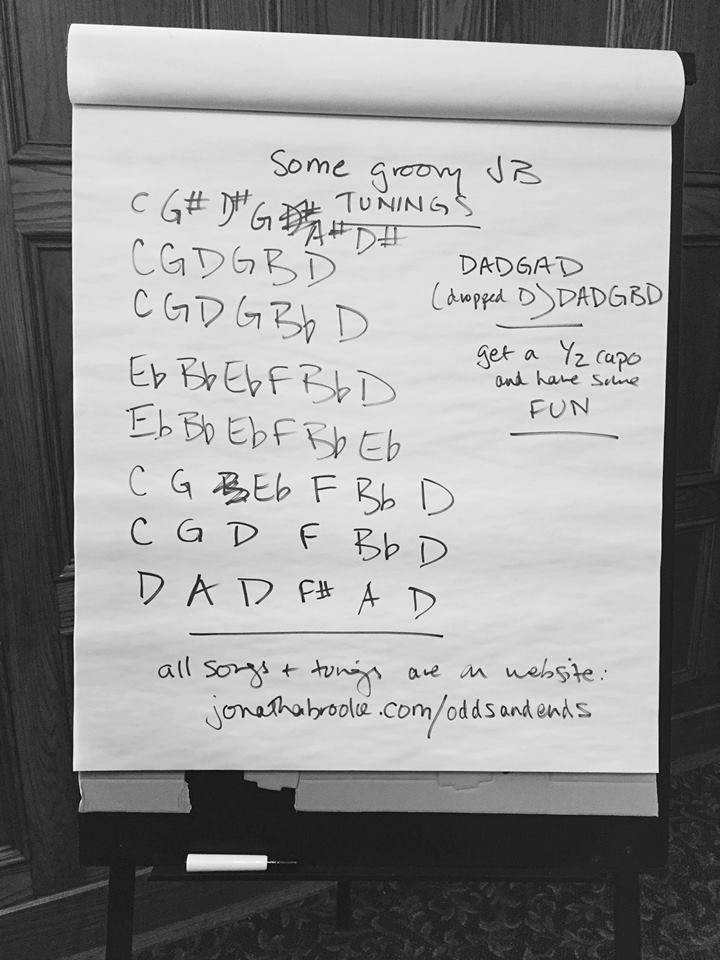 Some groovy JB
TUNINGS
C G# D# G A# D#
C G D G B D
C G D G Bb D
Eb Bb Eb F Bb D
Eb Bb Eb F Bb Eb
C G Eb F Bb D
C G D F Bb D
D A D F# A D
DADGAD
(dropped D) DADGBD
get a 1/2 capo
and have some
FUN
all songs + tunigs are on website:
jonathabrooke.com/oddsandends